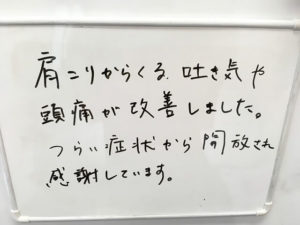 肩こりからくる吐き気や
頭痛が改善しました。
つらい症状から開放され
感謝しています。